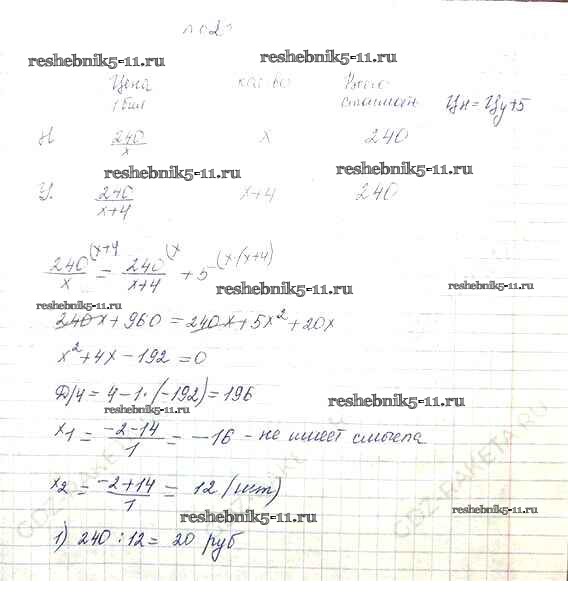 reshebnik5-11.ru reshebnik5-11.ru
Цена Всего
1 бил стоимость Цн = Цу+5
Н 240/x x 240
reshebnik5-11.ru reshebnik5-11.ru
У. 240/(x+4) x+4 240
240/x (x+4 = 240/(x+4) (x + 5 (x·(x+4)
reshebnik5-11.ru
reshebnik5-11.ru
240x + 960 = 240x + 5x² + 20x
x² + 4x − 192 = 0
Д/4 = 4 − 1·(−192) = 196
reshebnik5-11.ru
reshebnik5-11.ru
x₁ = (−2−14)/1 = −16 - не имеет смысла
x₂ = (−2+14)/1 = 12 (шт)
reshebnik5-11.ru
reshebnik5-11.ru
1) 240 : 12 = 20 руб
GDZ-RAKETA.RU
GDZ-RAKETA.RU